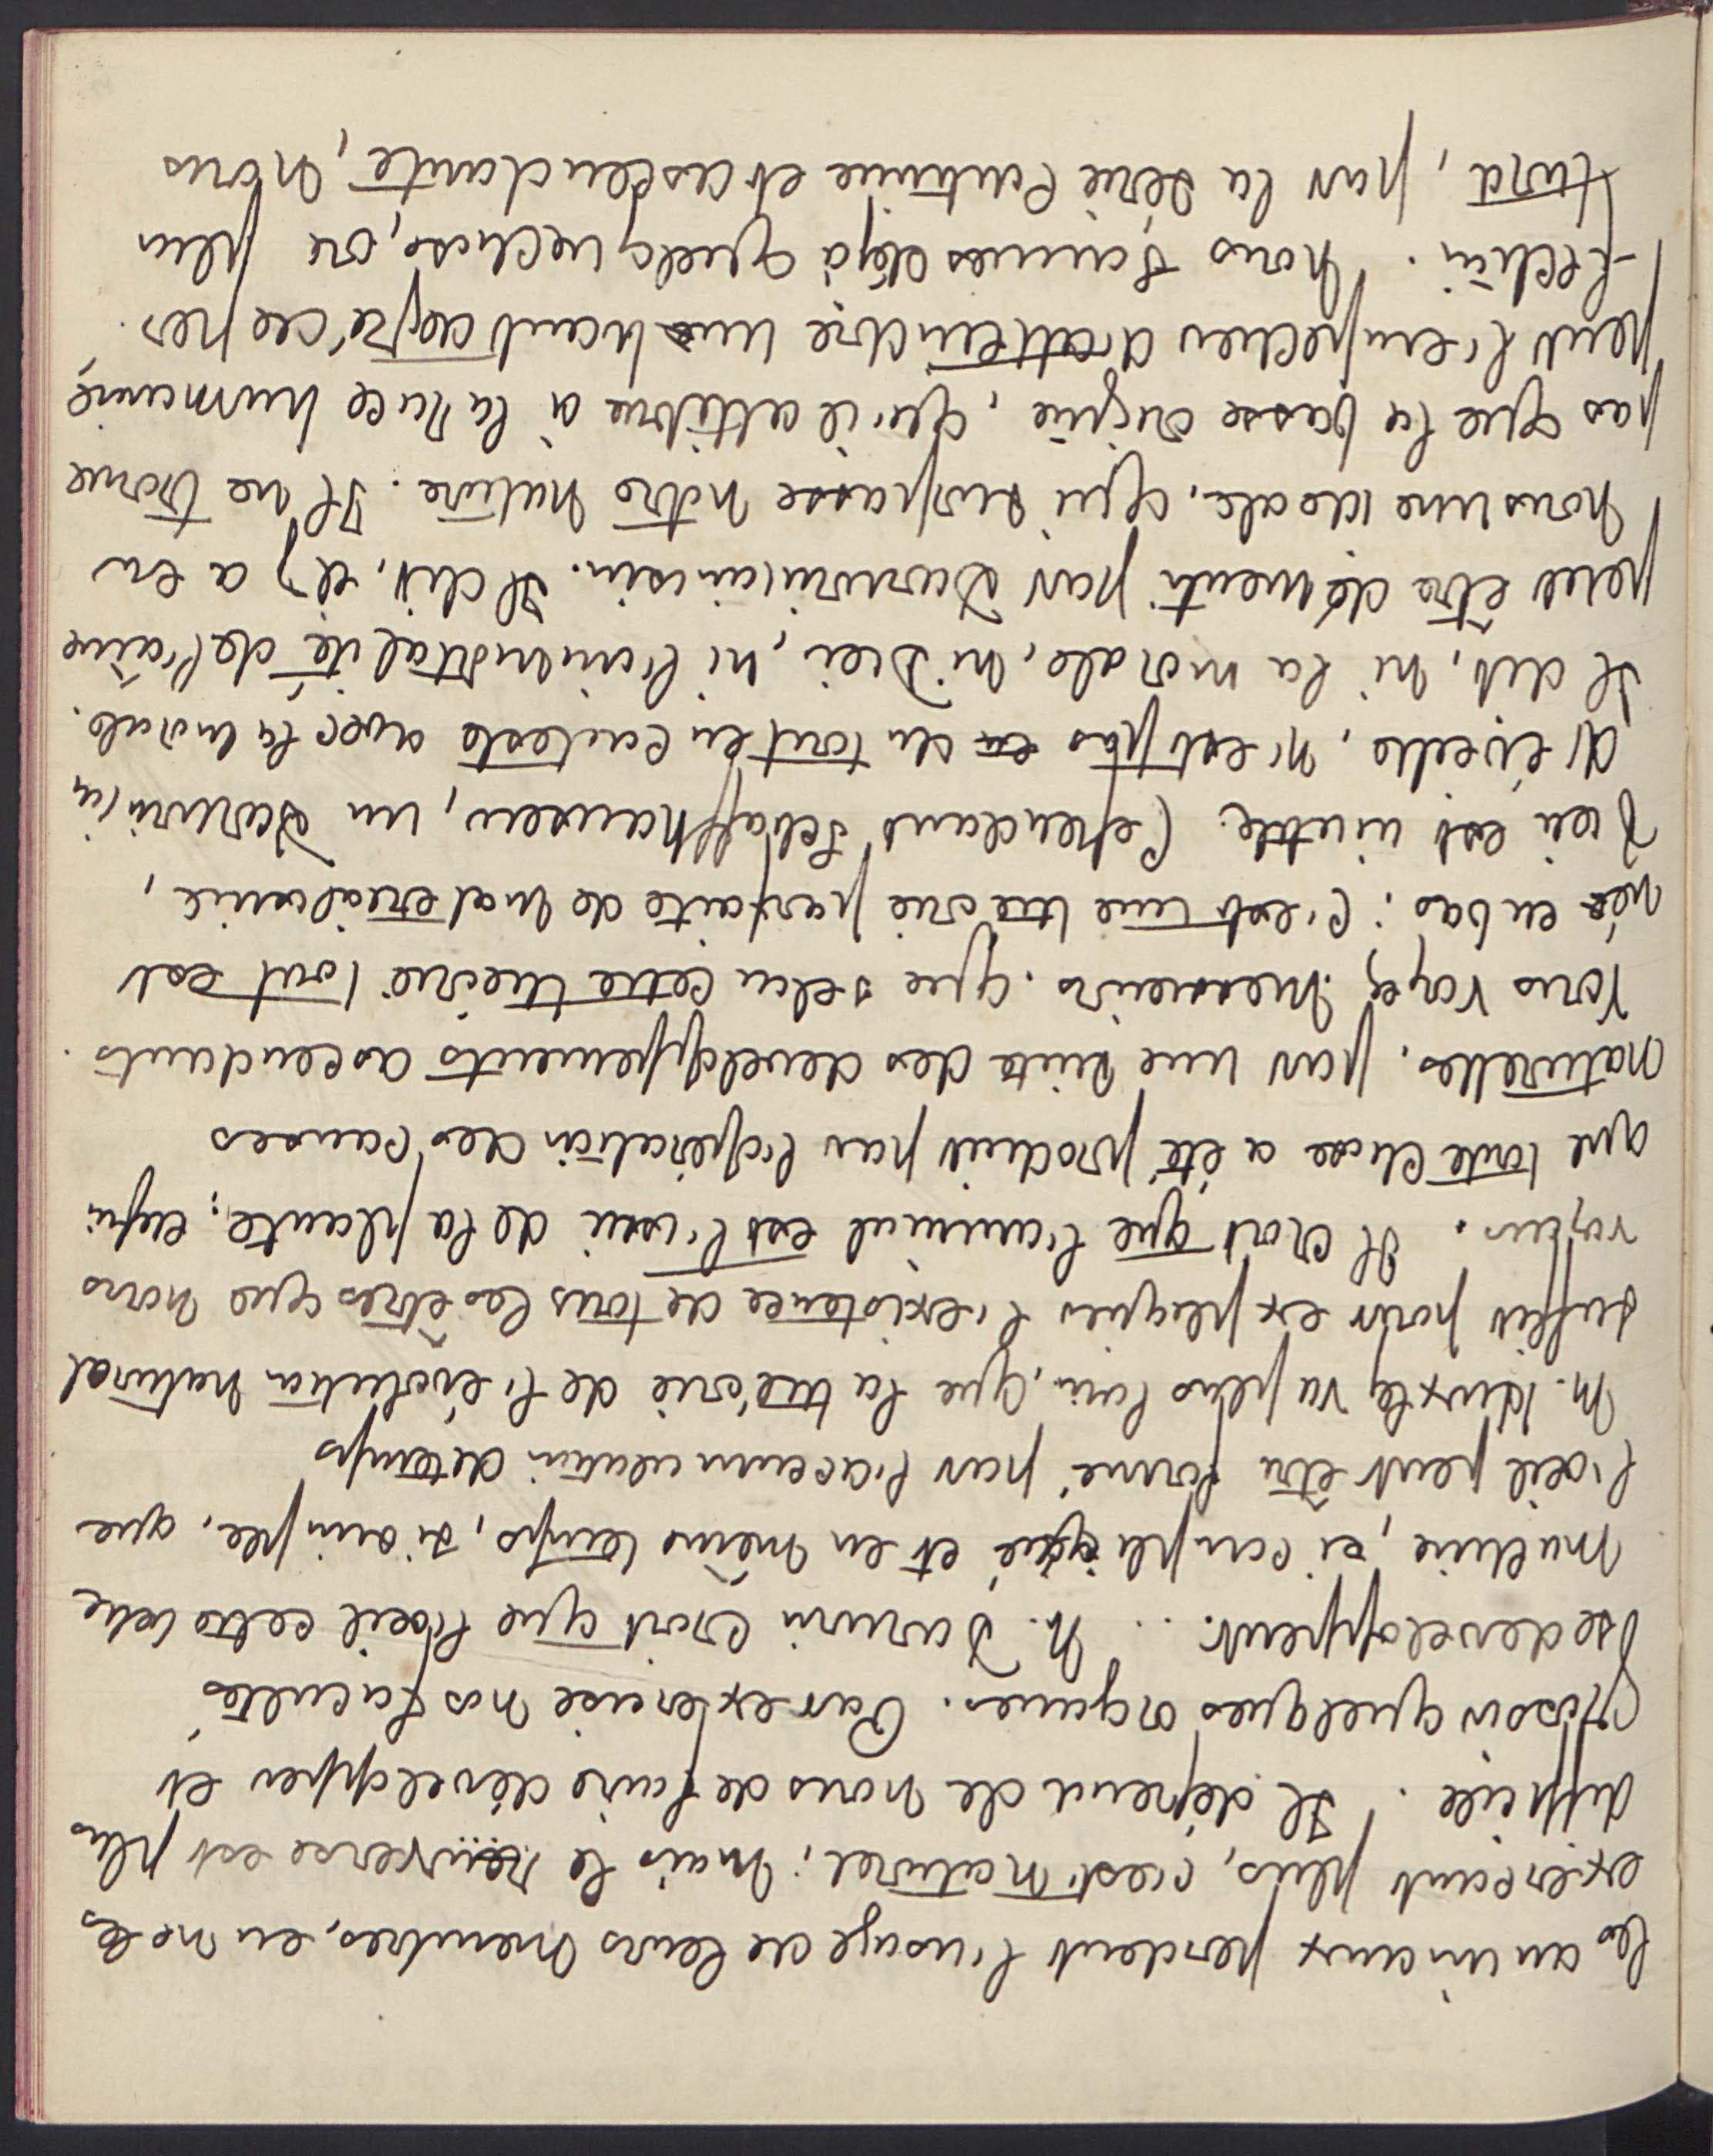 les animaux perdent l'usage de leurs membres, en ne les
exerçant plus, c'est naturel; mais le renverse est plus
difficile. Il dépend de nous de faire développer et
grossir quelques organes. Par exercice nos facultés
se developpent... M. Darwin croit que l'oeil cette belle
machine, si compliqué et en même temps, si simple, que
l'oeil peut être formé par l'accumulation de temps
M. Huxley va plus loin, que la théorie de l'évolution natural
suffit pour expliquer l'existence de tous les êtres que nous
voyons. Il croit que l'animal est l'issu de la plante; enfin
que toute chose a été produit par l'operation des causes
naturelles, par une suite des developpements ascendants.
Vous voyez Messieurs, que selon cette theorie tout est
né en bas; c'est une theorie parfaite de materialisme,
Dieu est inutile. Cependant Schaffhausen, un Darwinien
d'éveillé, n'est pas en du tout en conteste avec la morale.
Il dit, ni la morale, ni Dieu, ni l'immortalité de l'âme
peut être démenti par Darwinianism. Il dit, il y a en
nous une ideale, qui surpasse notre nature. Il ne trouve
pas que la basse origine, qu'il attribue à la race humaine
peut l'empecher d'atteindre un haut degré de per-
fection. Nous sommes déjà quelquechose, or plus
tard, par la série continue et ascendante, nous